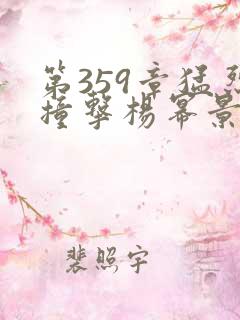 第359章猛烈
撞擊楊冪景
裴照宇